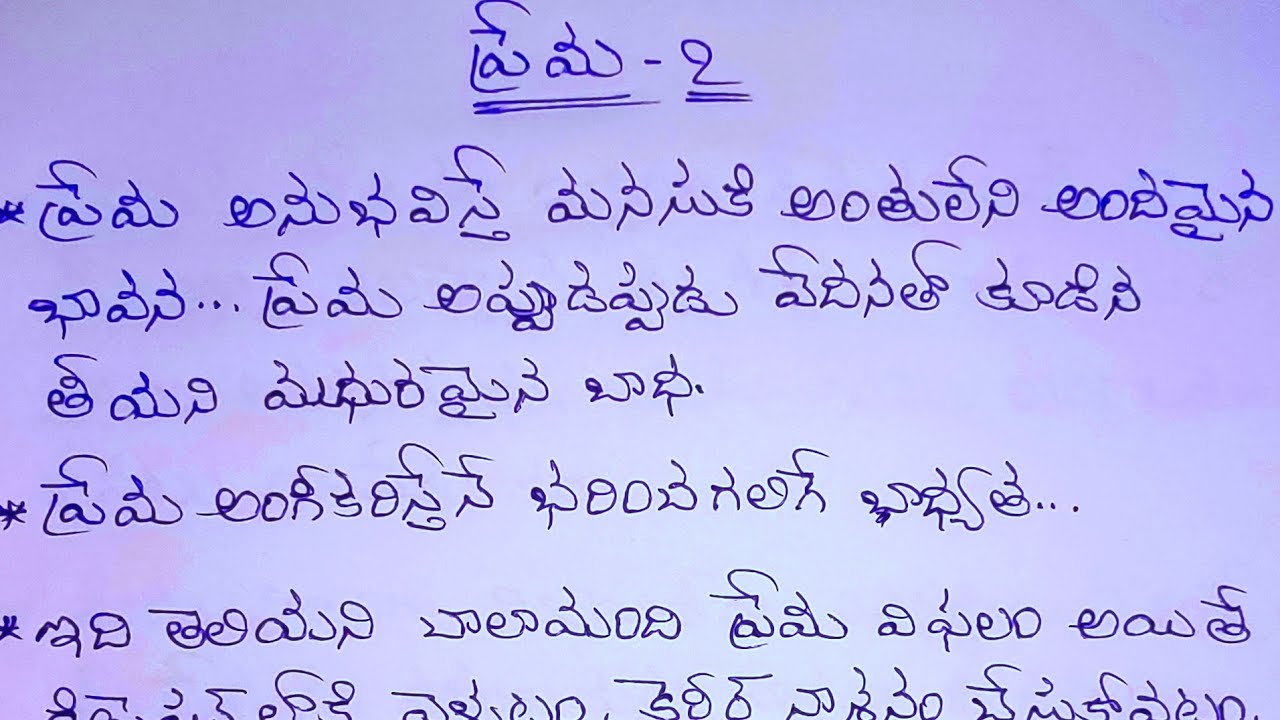 ప్రేమ - 2
* ప్రేమ అనుభవిస్తే మనసుకి అంతులేని అందమైన
భావన... ప్రేమ అప్పుడెప్పుడు వేదనతో కూడిన
తీయని మధురమైన బాధ.
* ప్రేమ అంగీకరిస్తేనే భరించగలిగే బాధ్యత...
* ఇది తెలియని చాలామంది ప్రేమ విఫలం అయితే
డిప్రెషన్ లోకి వెళ్ళటం, కెరీర్ నాశనం చేసుకోవటం,